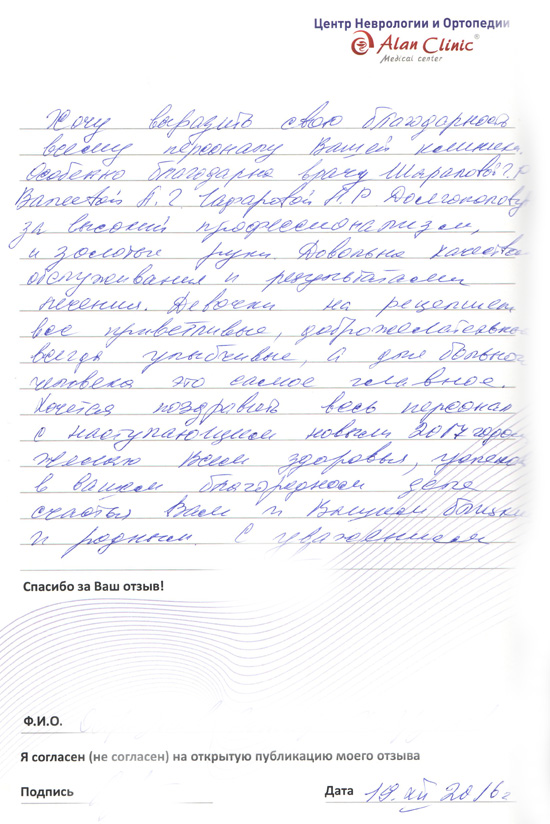 Центр Неврологии и Ортопедии
Alan Clinic®
Medical center
Хочу выразить свою благодарность
всему персоналу Вашей клиники.
Особенно благодарна врачу Шараповой Г.Р
Валеевой А. Г. Гафаровой Л.Р Долгополову
за высокий профессионализм,
и золотые руки. Довольна качеством
обслуживания и результатами
лечения. Девочки на рецепшен
все приветливые, доброжелательные
всегда улыбчивые, а для больного
человека это самое главное.
Хочется поздравить весь персонал
с наступающим новым 2017 годом
желаю Всем здоровья, успехов
в вашем благородном деле
счастья Вам и Вашим близким
и родным. С уважением
Спасибо за Ваш отзыв!
Ф.И.О.
Я согласен (не согласен) на открытую публикацию моего отзыва
Подпись Дата 19. XII 2016 г